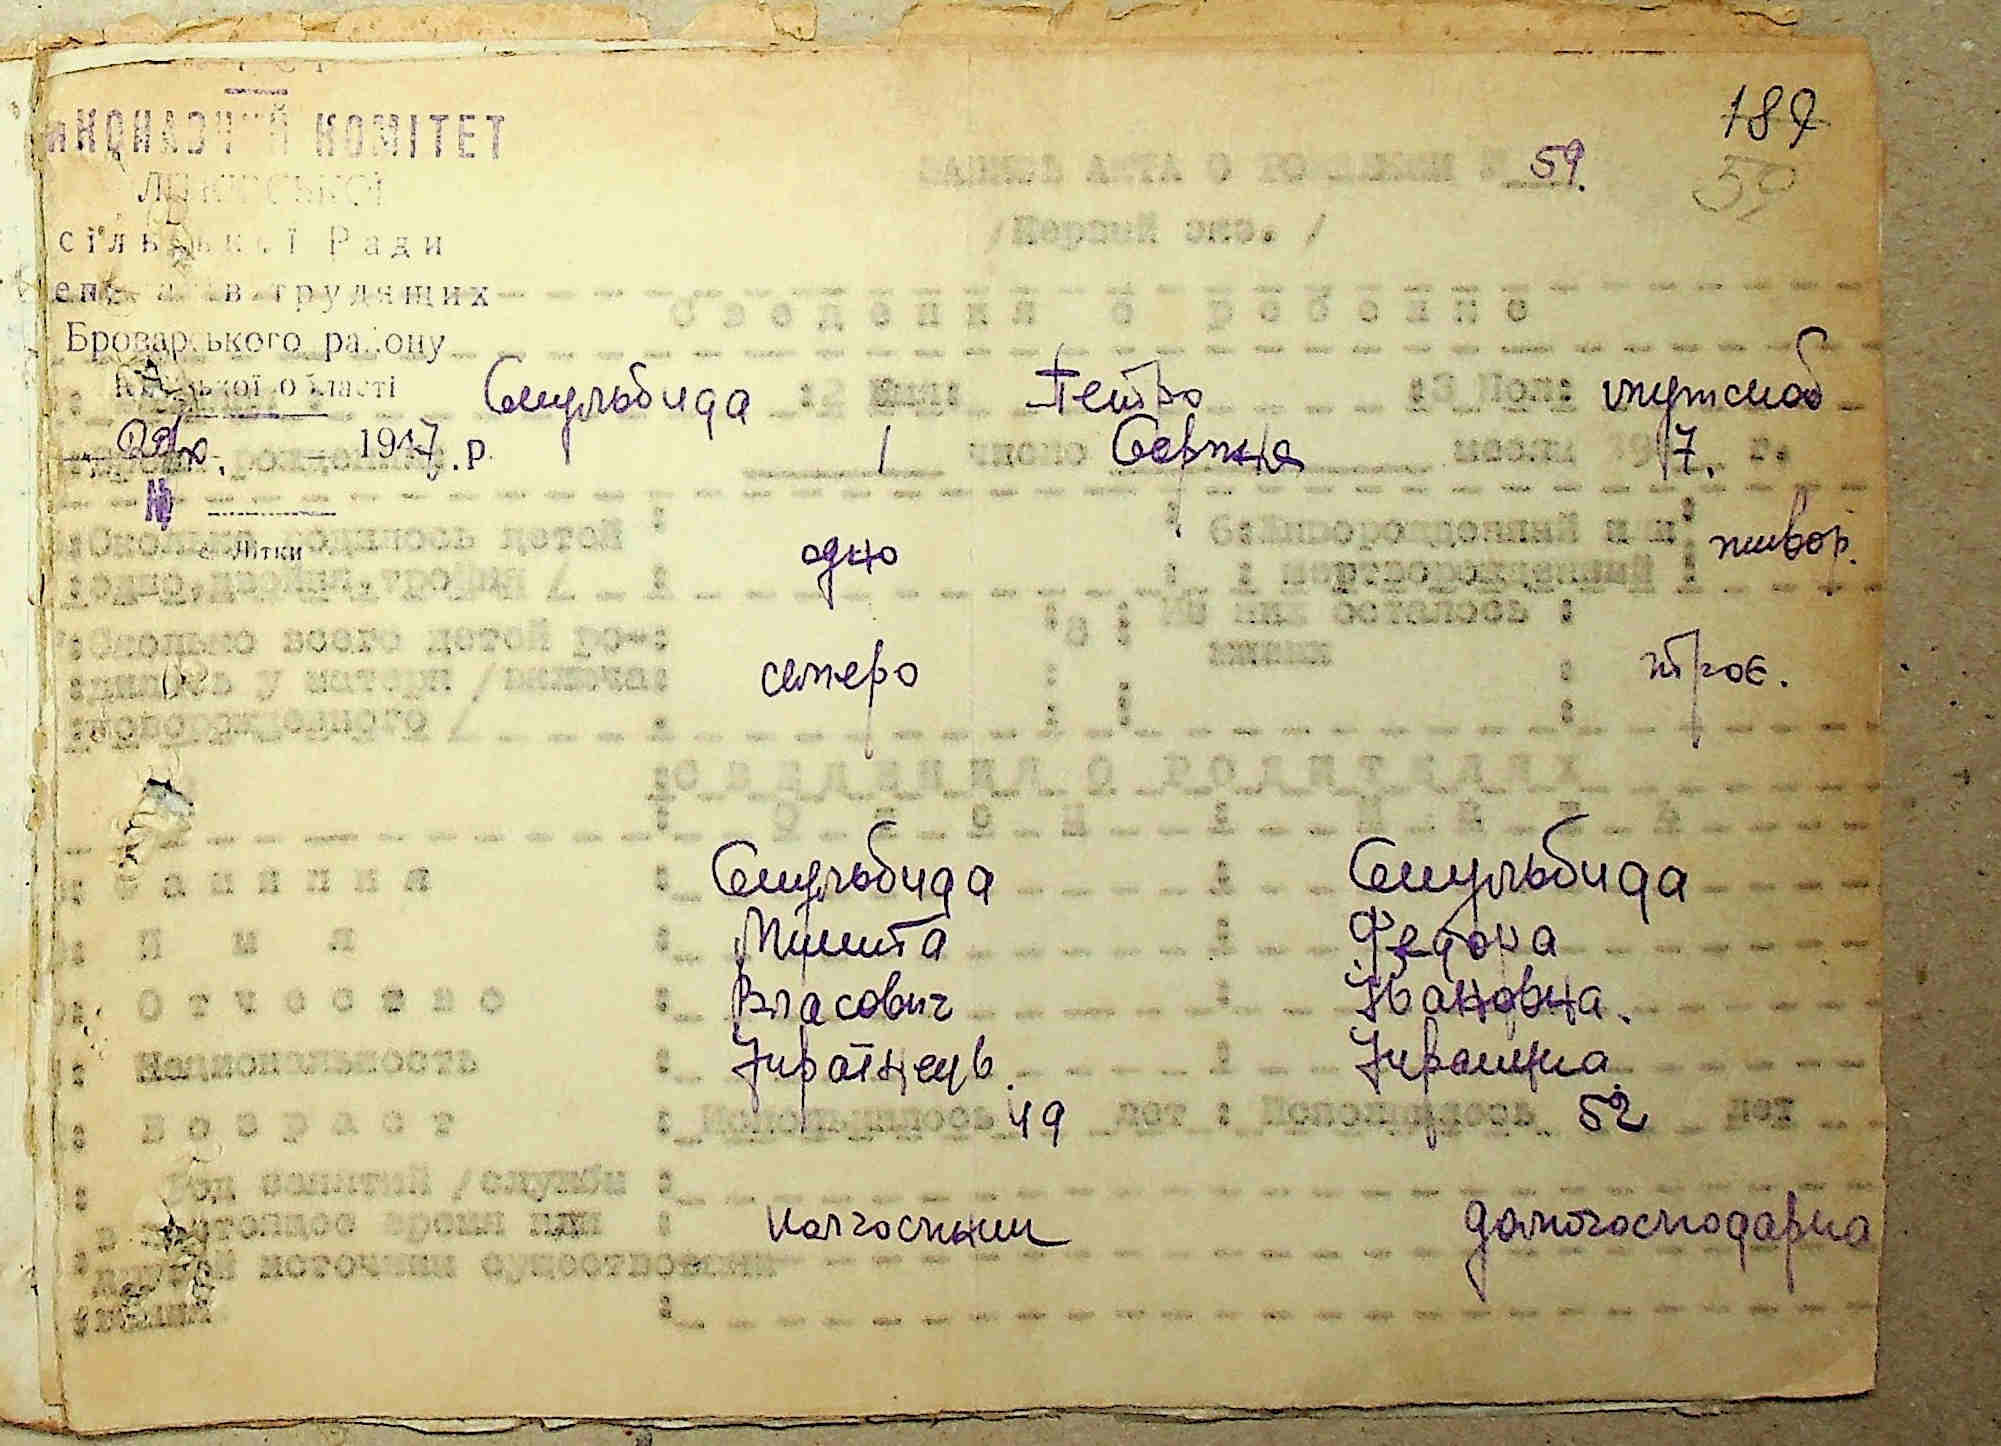 189
59
ВИКОНАВЧИЙ КОМІТЕТ
ЛІТКІВСЬКОЇ
сільської Ради
депутатів трудящих
Броварського району
Київської області
1947 р.
№
с. Літки
ЗАПИСЬ АКТА О РОЖДЕНИИ № 59.
/Первый экз. /
Сведения о ребенке
Скульбида :2 Имя: Петро :3 Пол: мужской
время рождения 1 число Серпня месяц 1947. г.
:Сколько родилось детей : одно : 6:Живорожденный или : живор.
:одно, двойня, тройня / : : мертворожденный :
:Сколько всего детей ро-: семеро : 8 : Из них осталось : троє.
:дилось у матери /включая: живыми
:новорожденного / :
:СВЕДЕНИЯ О РОДИТЕЛЯХ
: О т е ц : М а т ь
Фамилия : Скульбида : Скульбида
И м я : Микита : Федора
Отчество : Власович : Івановна.
Национальность : Українець. : Українка.
Возраст : Исполнилось 49 лет : Исполнилось 52 лет
: Род занятий /службы :
в настоящее время или : колгоспник домогосподарка
другой источник существования